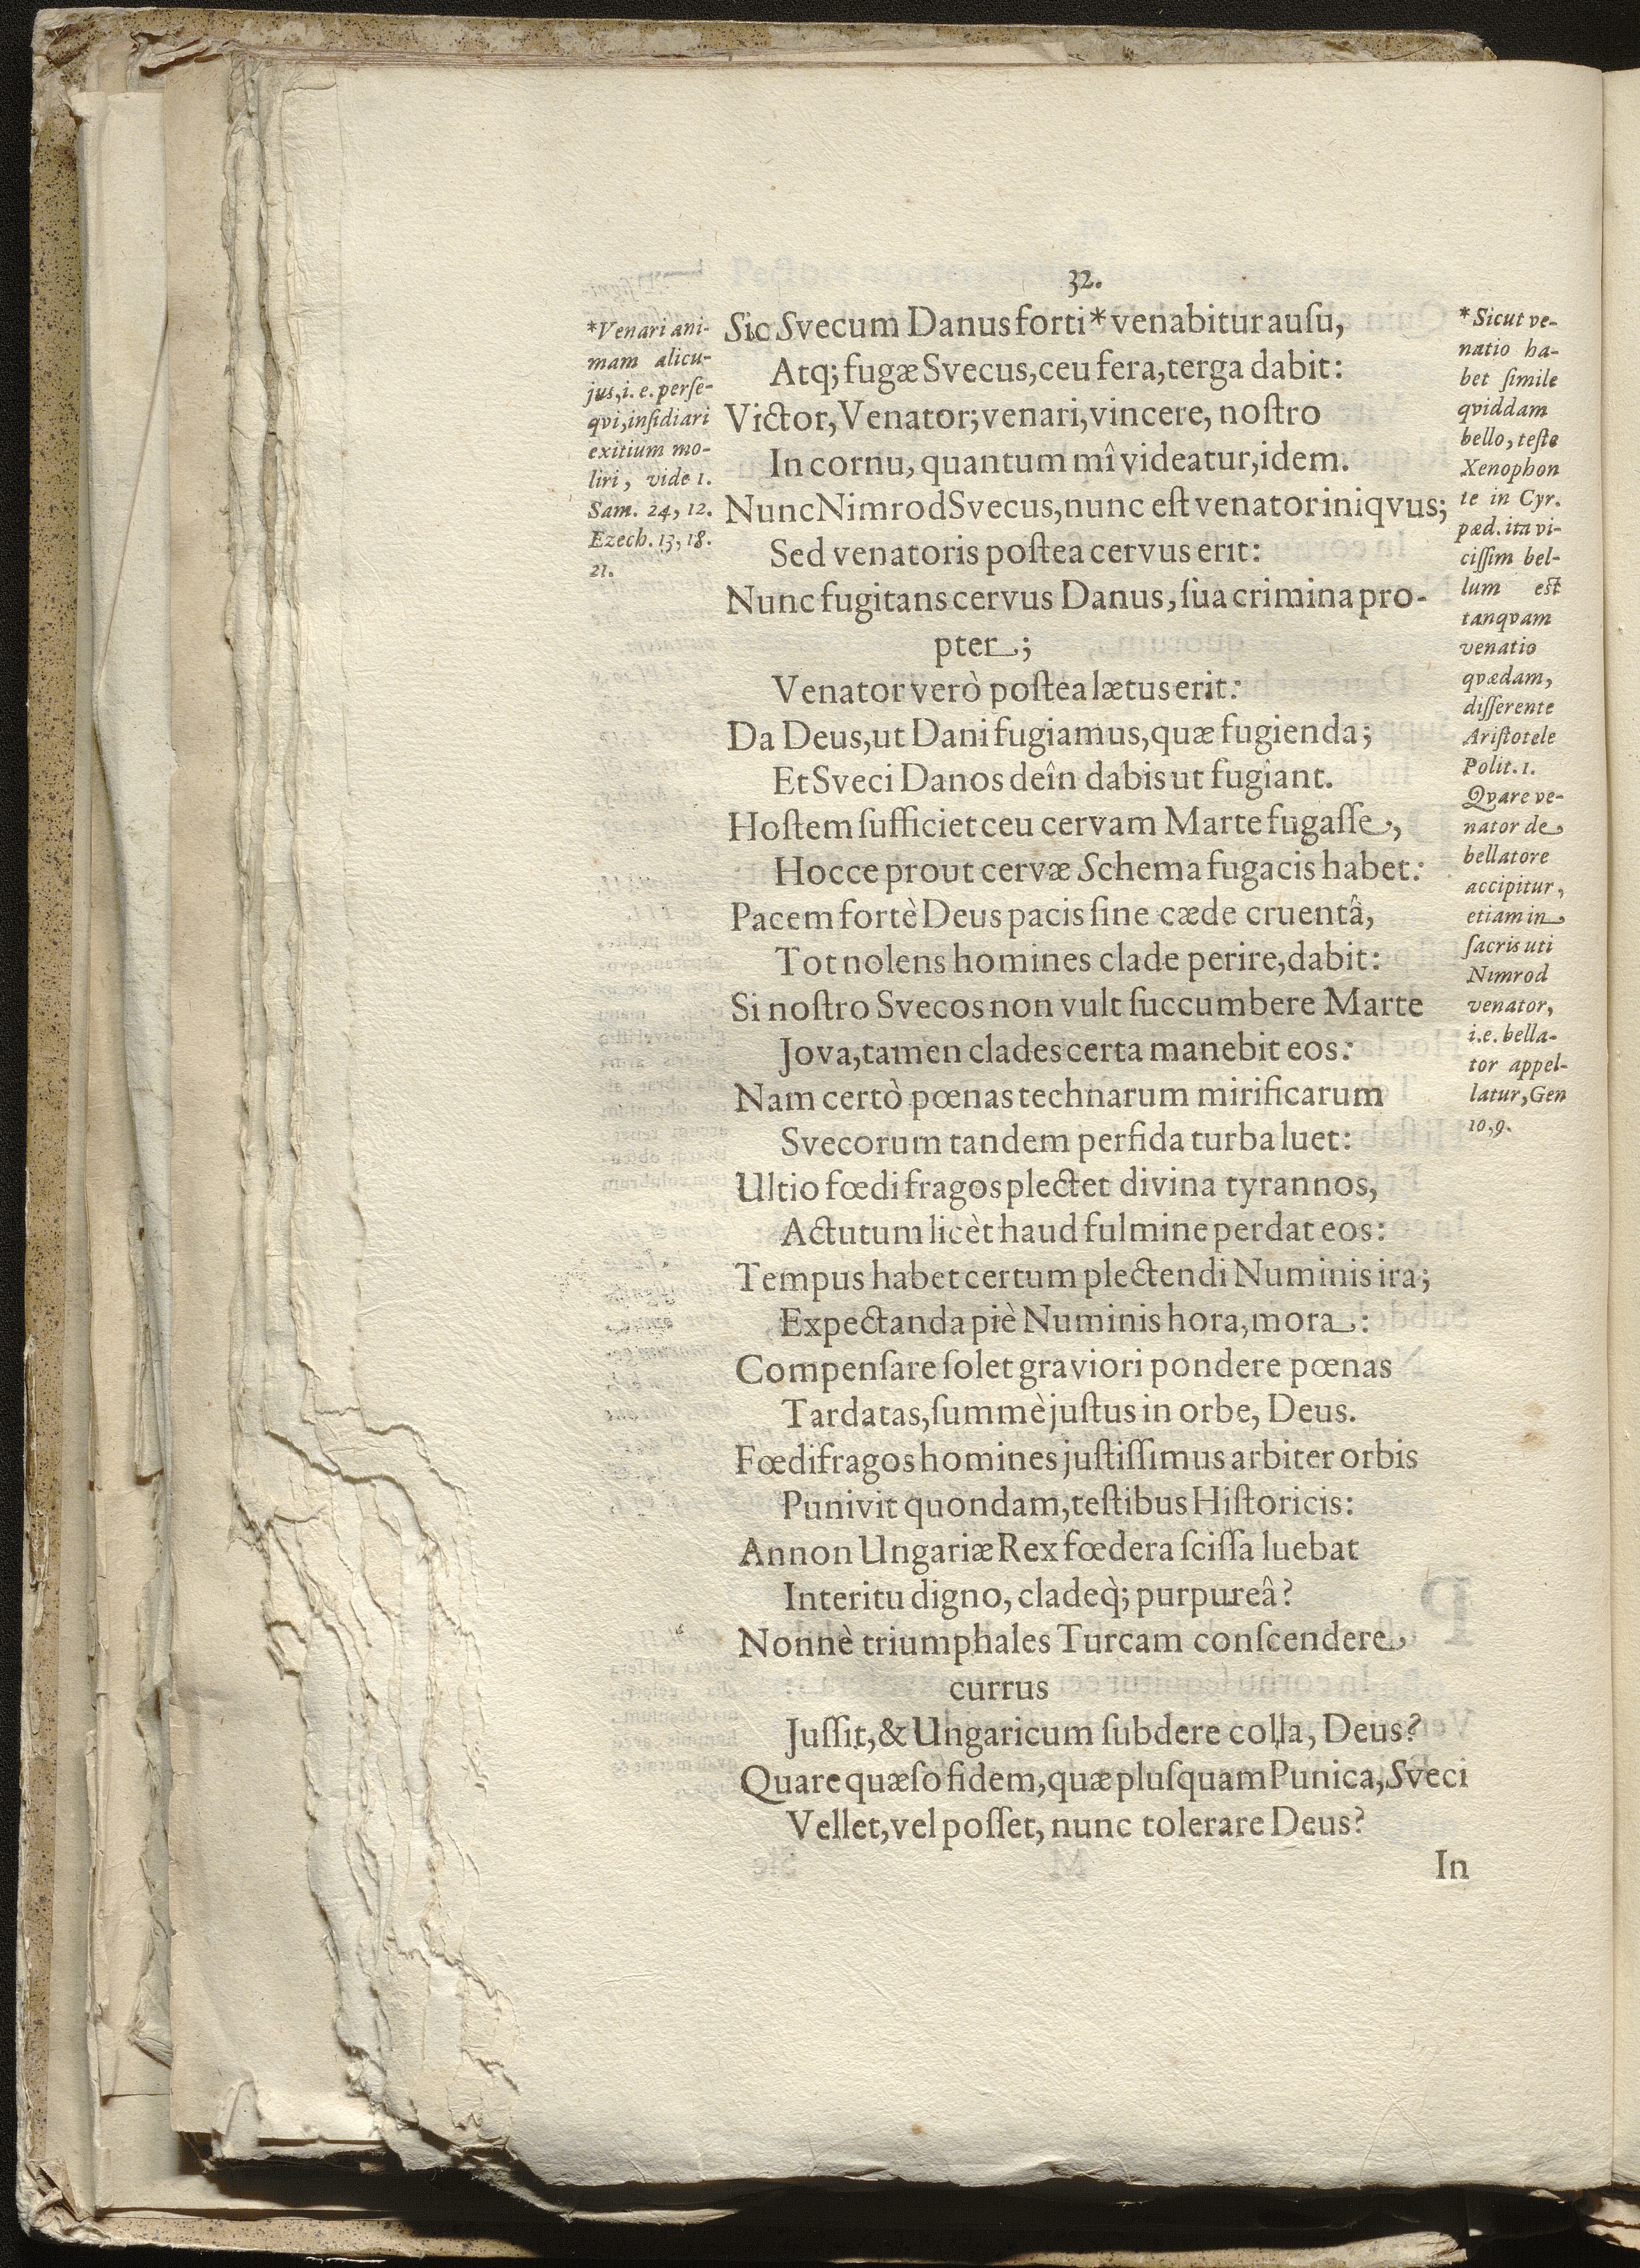 32.
*Venari ani-
mam alicu-
jus, i. e. perſe-
qvi, inſidiari
exitium mo-
liri, vide 1.
Sam. 24, 12.
Ezech. 13, 18.
21.
Sic Svecum Danus forti * venabitur auſu,
Atq; fugæ Svecus, ceu fera, terga dabit:
Victor, Venator; venari, vincere, noſtro
In cornu, quantum mî videatur, idem.
Nunc Nimrod Svecus, nunc eſt venator iniqvus;
Sed venatoris poſtea cervus erit:
Nunc fugitans cervus Danus, ſua crimina pro-
pter;
Venator verò poſtea lætus erit:
Da Deus, ut Dani fugiamus, quæ fugienda;
Et Sveci Danos deîn dabis ut fugiant.
Hoſtem ſufficiet ceu cervam Marte fugaſſe,
Hocce prout cervæ Schema fugacis habet:
Pacem fortè Deus pacis ſine cæde cruentâ,
Tot nolens homines clade perire, dabit:
Si noſtro Svecos non vult ſuccumbere Marte
Jova, tamen clades certa manebit eos:
Nam certò pœnas technarum mirificarum
Svecorum tandem perfida turba luet:
Ultio fœdifragos plectet divina tyrannos,
Actutum licèt haud fulmine perdat eos:
Tempus habet certum plectendi Numinis ira;
Expectanda piè Numinis hora, mora:
Compenſare ſolet graviori pondere pœnas
Tardatas, ſummè juſtus in orbe, Deus.
Fœdifragos homines juſtiſſimus arbiter orbis
Punivit quondam, teſtibus Hiſtoricis:
Annon Ungariæ Rex fœdera ſciſſa luebat
Interitu digno, cladeq̀; purpureâ?
Nonnè triumphales Turcam conſcendere
currus
Juſſit, & Ungaricum ſubdere colla, Deus?
Quare quæſo fidem, quæ pluſquam Punica, Sveci
Vellet, vel poſſet, nunc tolerare Deus?
In
* Sicut ve-
natio ha-
bet ſimile
qviddam
bello, teſte
Xenophon
te in Cyr.
pæd. ita vi-
ciſſim bel-
lum eſt
tanqvam
venatio
qvædam,
diſſerente
Ariſtotele
Polit. 1.
Qvare ve-
nator de
bellatore
accipitur,
etiam in
ſacris uti
Nimrod
venator,
i. e. bella-
tor appel-
latur, Gen
10, 9.